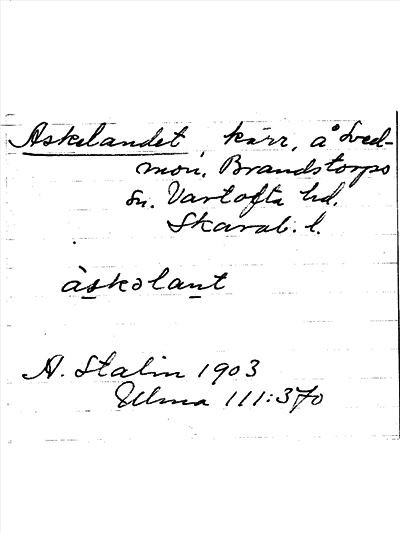 Askelandet, kärr, å Sved-
mon, Brandstorps
sn. Vartofta hd.
Skarab. l.
àskəlant
A. Stalin 1903
Ulma 111:370